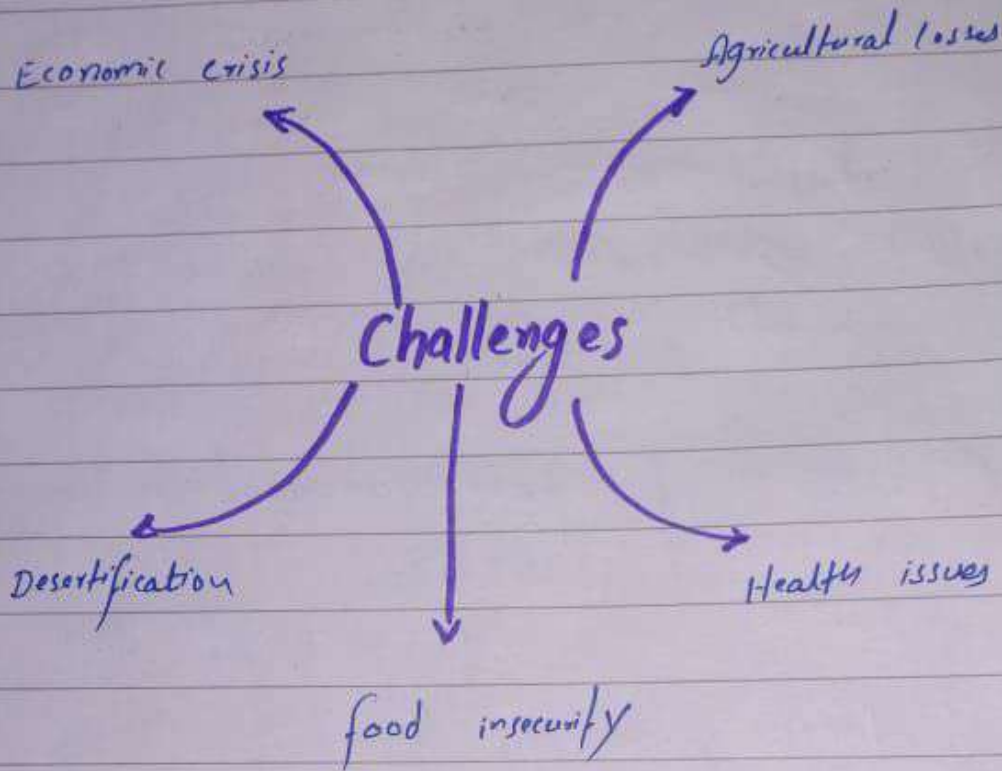 Economic crisis
Agricultural losses
Challenges
Desertification
Health issues
food insecurity